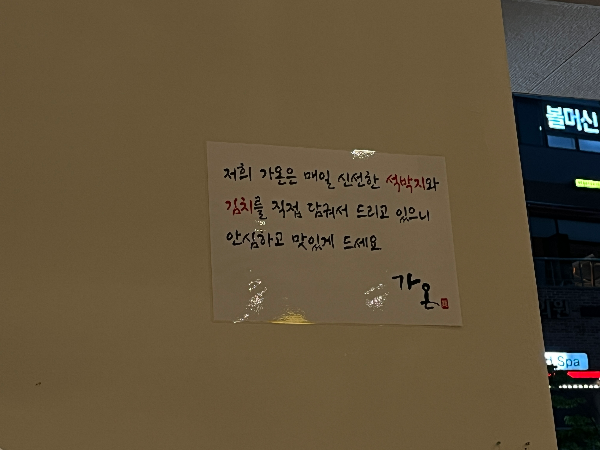 저희 가온은 매일 신선한 석박지와
김치를 직접 담궈서 드리고 있으니
안심하고 맛있게 드세요
가온
볼머신
Spa